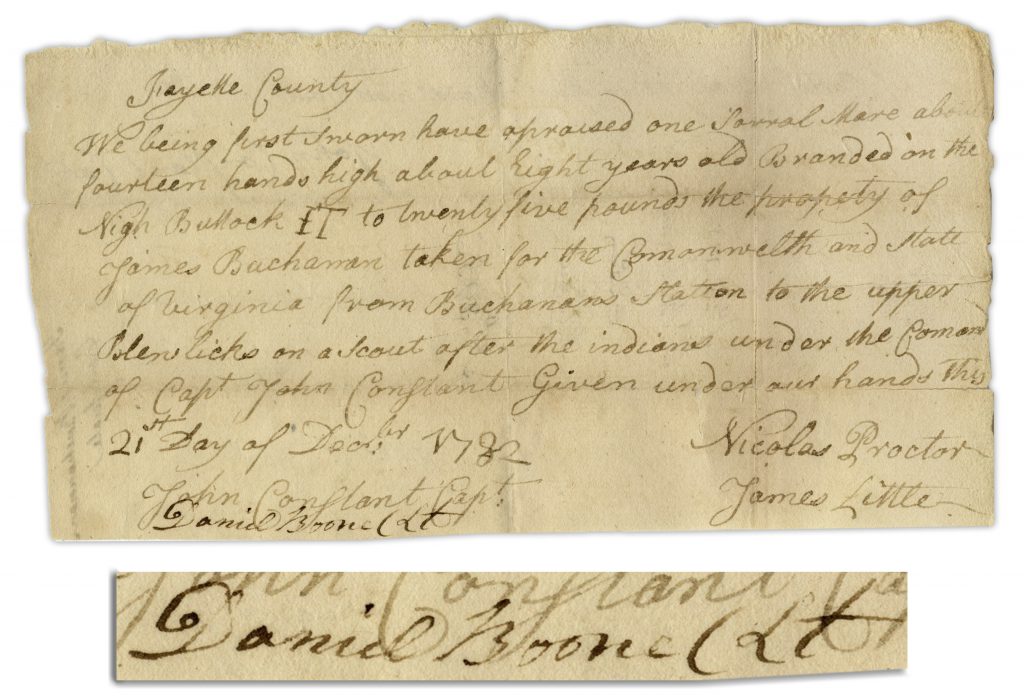 Fayette County
We being first Sworn have apraised one Sorral Mare about
fourteen hands high about Eight years old Branded on the
Nigh Buttock IT to twenty five pounds the propety of
James Buchannan taken for the Comonwelth and State
of Virginia from Buchanans Station to the upper
Blewlicks on a Scout after the indians under the Comand
of Capt John Constant Given under our hands This
21st Day of Decr. 1782
Nicolas Proctor
John Constant Capt.
James Little
Daniel Boone Lt
John Constant Ca
Daniel Boone Lt